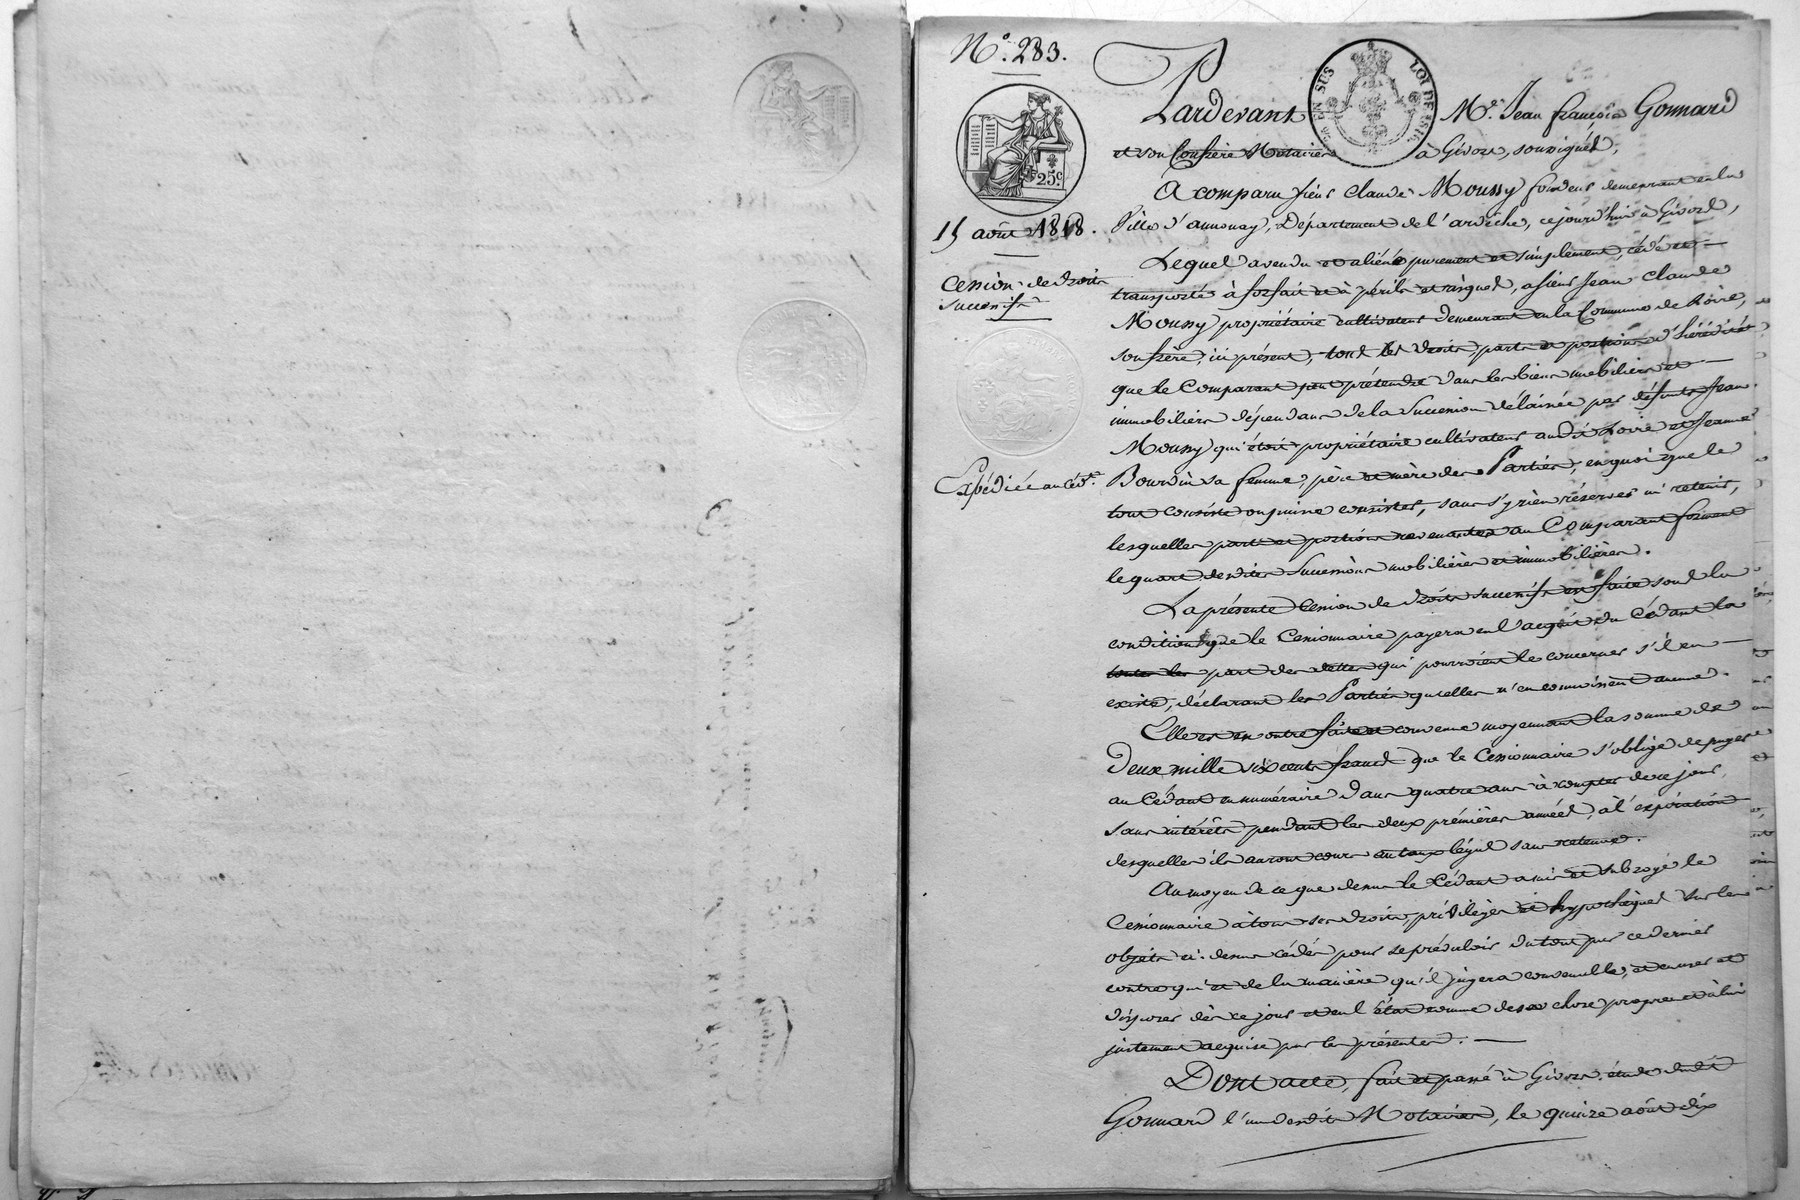 N.° 283.
25.c
EN SUS
LOI DE 1816
15 août 1818.
Cession de droits
successifs
Expédiée au céd.t
Pardevant M.e Jean françois Gonnard
et son Confrère Notaires à Givors, soussignés,
A comparu sieur Claude Moussy fondeur demeurant en la
Ville d'annonay, Département de l'ardèche, ce jourd'hui à Givors,
Lequel a vendu et aliéné purement et simplement, cédé et
transporté à forfait et à périls et risques, a sieur Jean Claude
Moussy propriétaire cultivateur demeurant en la Commune de Loire,
son frère, ici présent, tous les droits, parts et portions d'hérédité
que le Comparant peut prétendre dans les biens mobiliers et
immobiliers dépendans de la Succession délaissée par défunts Jean
Moussy qui étoit propriétaire cultivateur audit Loire et Jeanne
Bourdin sa femme, père et mère des Parties, en quoi que le
tout consiste ou puisse consister, sans s'y rien réserver ni retenir,
lesquelles parts et portions revenantes au Comparant forment
le quart desdites Successions mobilières et immobilières.
La présente Cession de droits successifs est faite sous la
condition que le Cessionnaire payera en l'acquit du Cédant la
toutes les part des dettes qui pourroient les concerner s'il en
existe, déclarant les Parties qu'elles n'en connoissent aucune.
Elle est en outre faite et convenue moyennant la somme de
Deux mille six cents francs que le Cessionnaire s'oblige de payer
au Cédant en numéraire dans quatre ans à compter de ce jour,
sans intérêts pendant les deux premières années, à l'expiration
desquelles ils auront cours au taux légal sans retenue.
Au moyen de ce que dessus le Cédant a mis et subrogé le
Cessionnaire à tous ses droits, privilèges et hypothèques sur les
objets ci-dessus cédés pour se prévaloir du tout par ce dernier
contre qui et de la manière qu'il jugera convenable, et en user et
disposer dès ce jour et en l'état comme de sa chose propre et à lui
justement acquise par les présentes.
Dont acte, fait et passé à Givors étude dudit
Gonnard l'un desdits Notaires, le quinze août dix